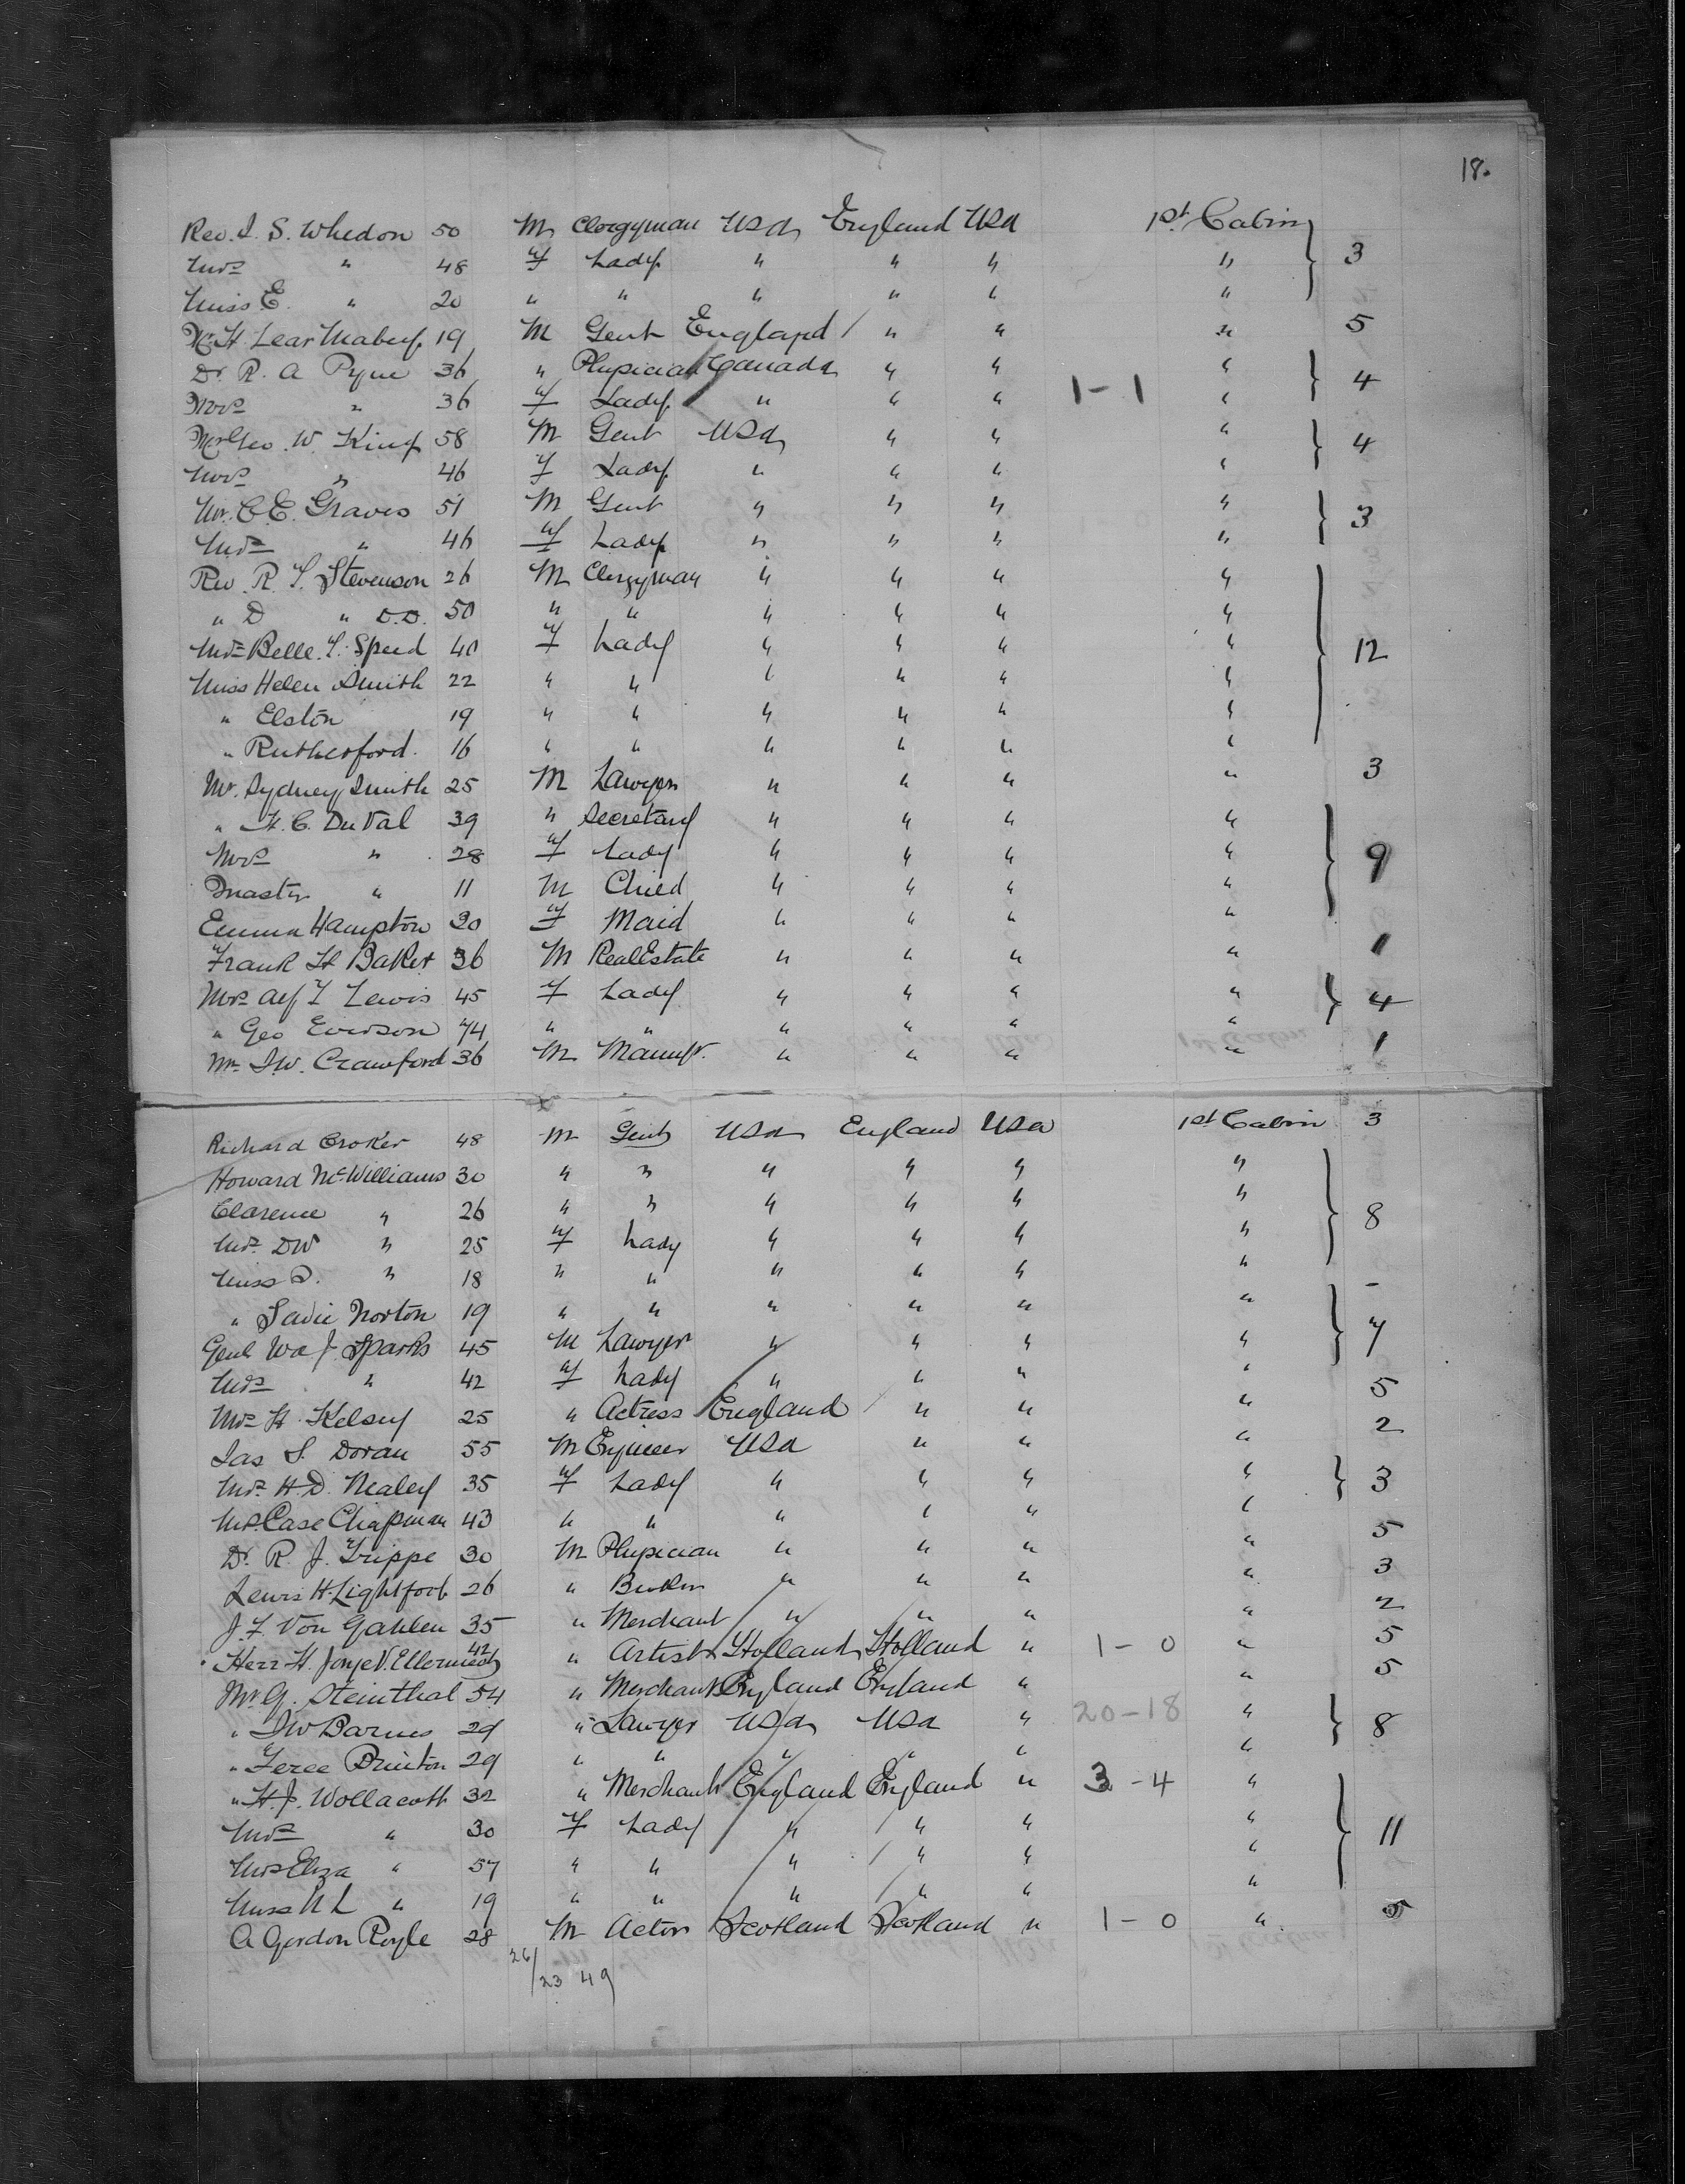 18.
Rev. J. S. Whedon 50 M Clergyman USA England USA 1st Cabin
Mrs " 48 f Lady " " " " 3
Miss E. " 20 " " " " " "
Mr H. Lear Mabey 19 M Gent England " " " 5
Dr R. A Pyne 36 " Physician Canada " " "
Mrs " 36 f Lady " " " 1-1 " 4
Mr Geo. W. King 58 M Gent USA " " "
Mrs " 46 f Lady " " " " 4
Mr. C. E. Graves 51 M Gent " " " "
Mrs " 46 f Lady " " " " 3
Rev. R. T. Stevenson 26 M Clergyman " " " "
" D " D.D. 50 " " " " " "
Mrs Belle. T. Speed 40 f Lady " " " " 12
Miss Helen Smith 22 " " " " " "
" Elston 19 " " " " " "
" Rutherford. 16 " " " " " "
Mr. Sydney Smith 25 M Lawyer " " " " 3
" H. C. Du Val 39 " Secretary " " " "
Mrs " 28 f Lady " " " " 9
Master " 11 M Child " " " "
Emma Hampton 30 f Maid " " " "
Frank H Baker 36 M Real Estate " " " " 1
Mrs Alf T Lewis 45 f Lady " " " " 4
" Geo Everson 74 " " " " " "
Mr J.W. Crawford 36 M Manufr. " " " " 1
Richard Croker 48 M Gent USA England USA 1st Cabin 3
Howard McWilliams 30 " " " " " "
Clarence " 26 " " " " " "
Mrs DW " 25 f Lady " " " " 8
Miss D. " 18 " " " " " "
" Sadie Norton 19 " " " " " " -
Genl Wa J. Sparks 45 M Lawyer " " " " 7
Mrs " 42 f Lady " " " "
Mrs H. Kelsey 25 " Actress England " " " 5
Jas S. Doran 55 M Engineer USA " " " 2
Mrs H. D. Nealey 35 f Lady " " " " 3
Mrs Case Chapman 43 " " " " " "
Dr. R. J. Trippe 30 M Physician " " " " 5
Lewis H. Lightfoot 26 " Broker " " " " 3
J. F. Von Gahlen 35 " Merchant " " " " 2
Herr H. Jonge V. Ellemeet 42 " Artist Holland Holland " 1-0 " 5
Mr G. Steinthal 54 " Merchant England England " " 5
" J W Barnes 29 " Lawyer USA USA " 20-18 " 8
" Feree Brinton 29 " " " " " "
" H. J. Wollacott 32 " Merchant England England " 3-4 "
Mrs " 30 f Lady " " " " 11
Mrs Eliza " 57 " " " " " "
Miss N L " 19 " " " " " "
A Gordon Royle 28 M Actor Scotland Scotland " 1-0 " 5
26/23 49